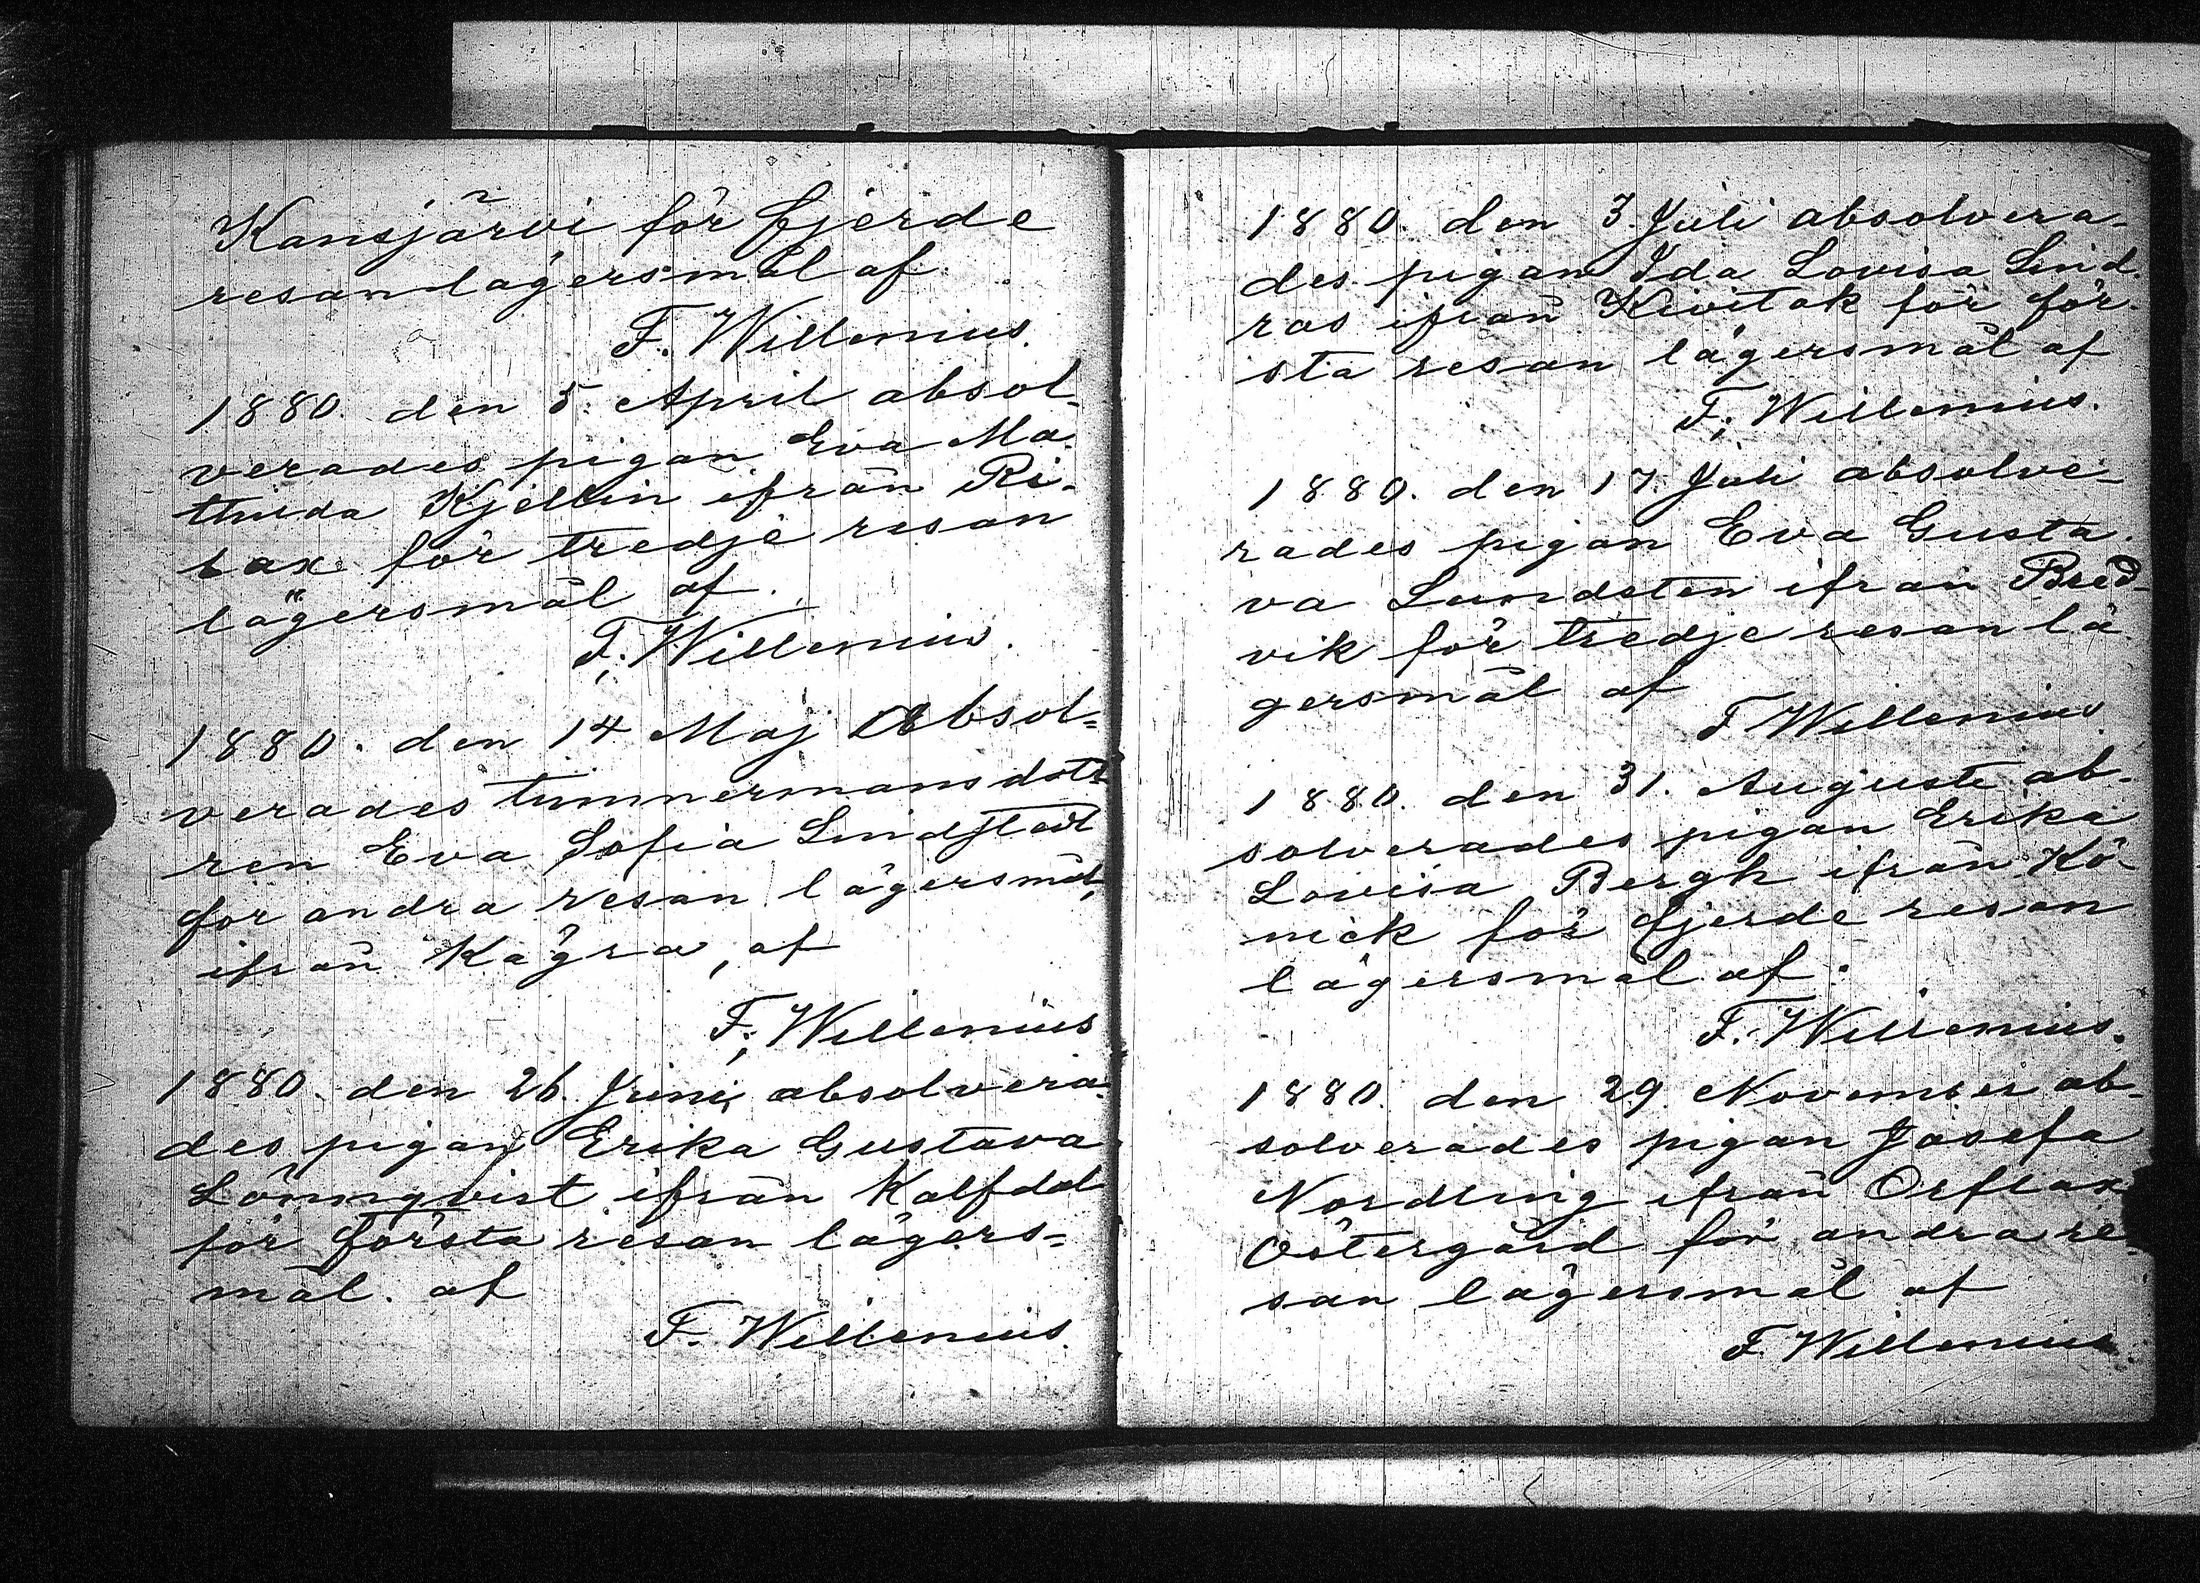 Kansjärvi för fjerde
resan lägersmål af
F. Willenius.
1880. den 5. April absol-
verades pigan Eva Ma-
thilda Kjellin ifrån Ri-
lax för tredje resan
lägersmål af.
F. Willenius.
1880. den 14 Maj Absol-
verades timmermansdott-
ren Eva Sofia Lindstedt
för andra resan lägersmål,
ifrån Kägra, af
F. Willenius
1880. den 26. Juni absolvera-
des pigan Erika Gustava
Lönnqvist ifrån Kalfdal
för första resan lägers-
mål. af
F. Willenius.
1880. den 3. Juli absolvera-
des pigan Ida Lovisa Lind-
ros ifrån Kivitok för för-
sta resan lägersmål af
F. Willenius.
1880. den 17. Juli absolve-
rades pigan Eva Gusta-
va Lundsten ifrån Bred-
vik för tredje resan lä-
gersmål af
F Willenius
1880. den 31. Augusti ab-
solverades pigan Erika
Lovisa Bergh ifrån Kö-
nick för fjerde resan
lägersmål af.
F. Willenius.
1880. den 29. November ab-
solverades pigan Josefa
Nordling ifrån Orslax
Östergård för andra re-
san lägersmål af
F. Willenius